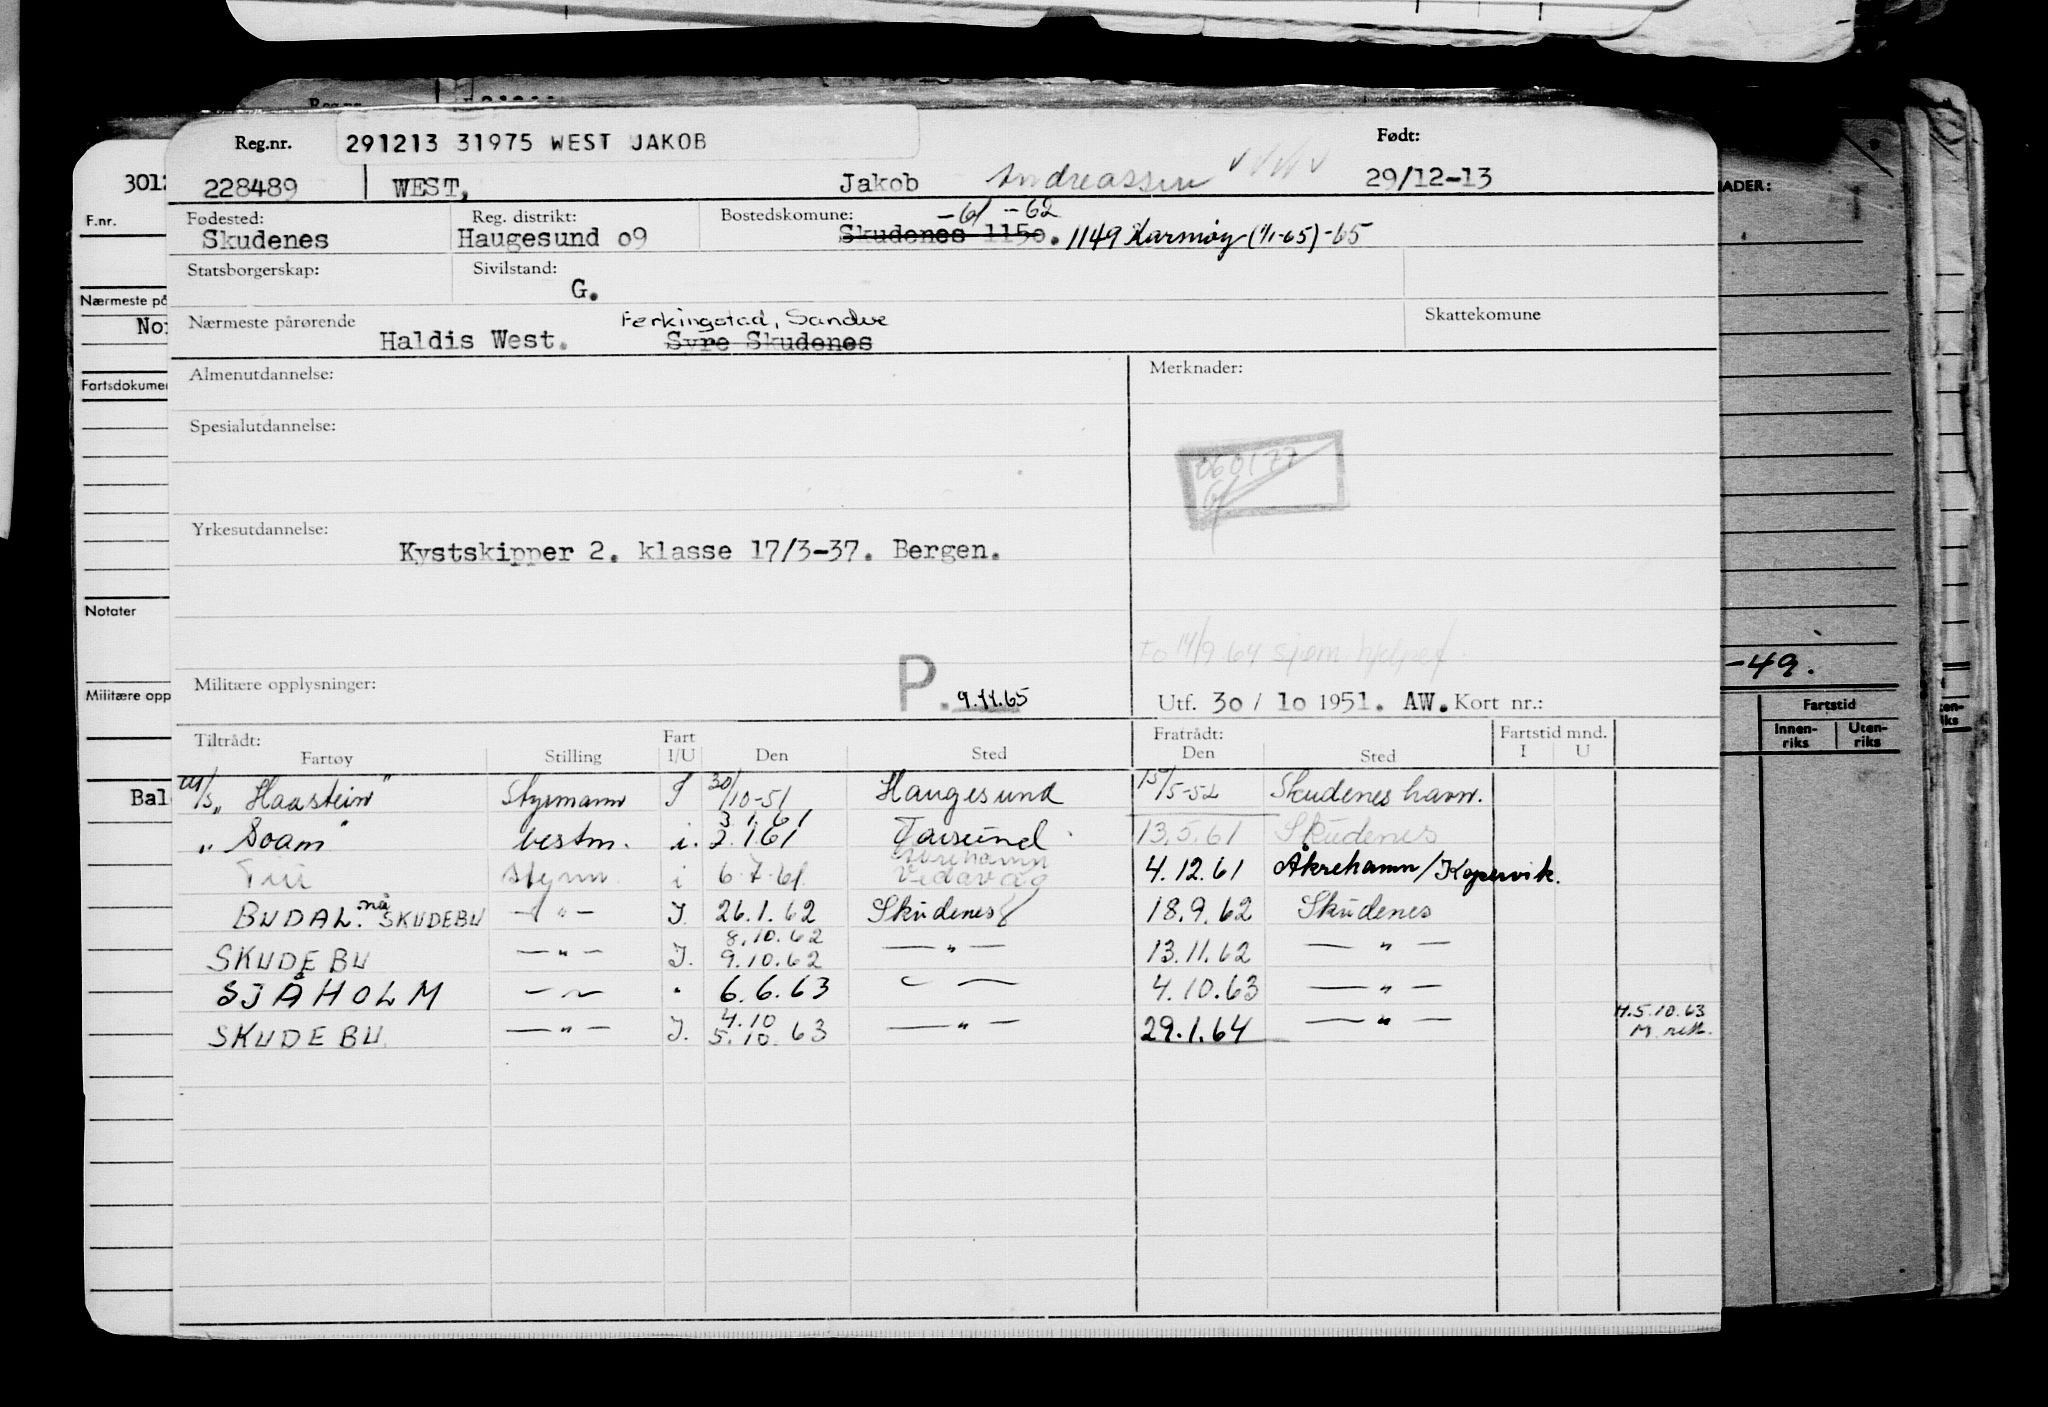 Reg.nr. 291213 31975 WEST JAKOB Født:
228489 WEST, Jakob Andreassen 29/12-13
Fødested: Reg. distrikt: Bostedskomune: -61 -62
Skudenes Haugesund 09 Skudenes 1150. 1149 Karmøy (1/1-65) -65
Statsborgerskap: Sivilstand:
G.
Nærmeste pårørende Ferkingstad, Sandve Skattekomune
Haldis West. Syre Skudenes
Almenutdannelse: Merknader:
Spesialutdannelse:
060177
Yrkesutdannelse:
Kystskipper 2. klasse 17/3-37. Bergen.
14/9 64 sjøm
Militære opplysninger: P. 9.11.65 Utf. 30/10 1951. AW. Kort nr.:
Tiltrådt: Fart Fratrådt: Fartstid mnd.
Fartøy Stilling I/U Den Sted Den Sted I U
M/S „Haastein" Styrmann I 30/10-51 Haugesund 15/5-52 Skudeneshavn.
3.1.61
„Soam" bestm. i. 2.1.61 13.5.61 Skudenes
Åkrehamn
styrm. i 6.7.61 Vedavåg 4.12.61 Åkrehamn/Kopervik.
BUDAL. nå SKUDEBU —"— I. 26.1.62 Skudenes 18.9.62 Skudenes
8.10.62
SKUDEBU —"— I. 9.10.62 —"— 13.11.62 —"—
SJÅHOLM —"— 6.6.63 —"— 4.10.63 —"—
4.10
SKUDEBU —"— I. 5.10.63 —"— 29.1.64 —"— 5.10.63
301
F.nr.
Nærmeste på
No
Fartsdokumen
Notater
Militære opp
Bal
ADER:
-49.
Fartstid
Innen-riks Uten-riks